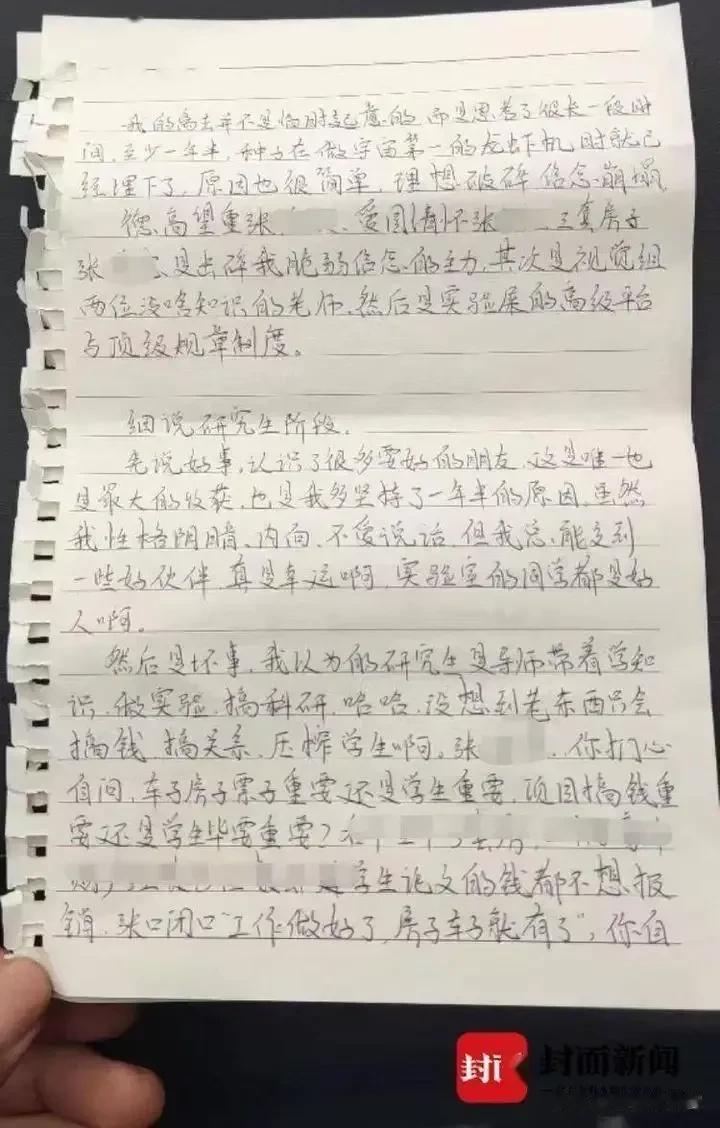 我的离去并不是临时起意的,而是思考了很长一段时
间,至少一年半,种子在做宇宙第一的龙虾机时就已
经埋下了,原因也很简单,理想破碎信念崩塌
德高望重张、爱国情怀张、三套房子
张是击碎我脆弱信念的主力,其次是视觉组
两位没啥知识的老师,然后是实验屋的高级平台
与顶级规章制度。
细说研究生阶段.
先说好事,认识了很多要好的朋友,这是唯一也
是最大的收获,也是我多坚持了一年半的原因,虽然
我性格阴暗、内向、不爱说话,但我总能交到
一些好伙伴,真是幸运啊,实验室的同学都是好
人啊。
然后是坏事,我以为的研究生是导师带着学知
识、做实验、搞科研,哈哈,没想到老东西只会
搞钱、搞关系、压榨学生啊。张,你扪心
自问,车子房子票子重要还是学生重要,项目搞钱重
要还是学生毕要重要?
学生论文的钱都不想报
销,张口闭口"工作做好了,房子车子就有了",你自
封面新闻